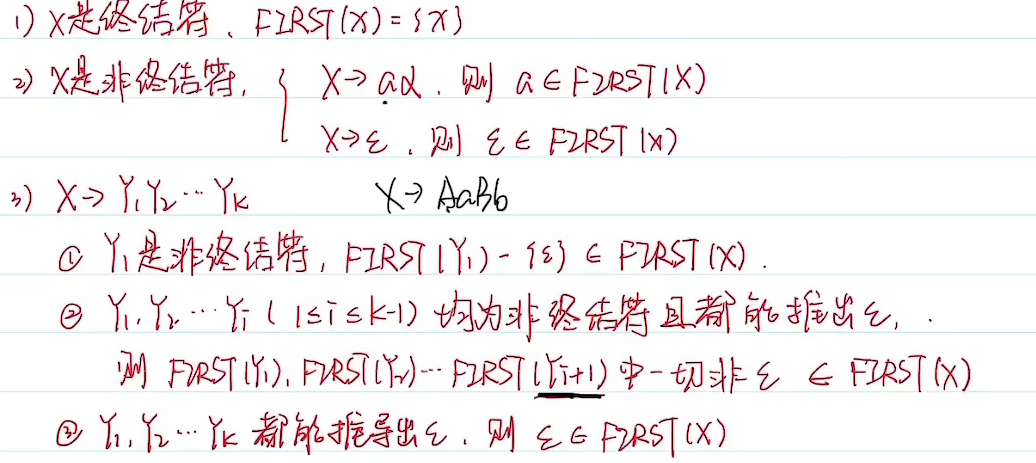 1) X是终结符、FIRST(X)={X}
2) X是非终结符, { X→aα、则 a∈FIRST(X)
X→ε、则 ε∈FIRST(X)
3) X→Y₁Y₂…Yₖ X→AaBb
① Y₁是非终结符, FIRST(Y₁)-{ε}∈FIRST(X).
② Y₁、Y₂…Yᵢ(1≤i≤k-1) 均为非终结符且都能推出ε,
则 FIRST(Y₁)、FIRST(Y₂)…FIRST(Yᵢ₊₁)中一切非ε ∈FIRST(X)
③ Y₁、Y₂…Yₖ 都能推导出ε、则 ε∈FIRST(X)